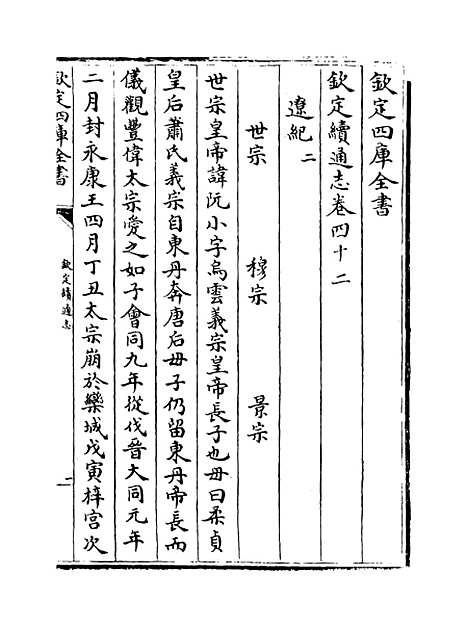 欽定四庫全書
欽定續通志卷四十二
遼紀二
世宗　穆宗　景宗
世宗皇帝諱阮小字烏雲義宗皇帝長子也毋曰柔貞
皇后蕭氏義宗自東丹奔唐后毋子仍留東丹帝長而
儀觀豐偉太宗愛之如子會同九年從伐晉大同元年
二月封永康王四月丁丑太宗崩於欒城戊寅梓宮次
欽定四庫全書
欽定續通志